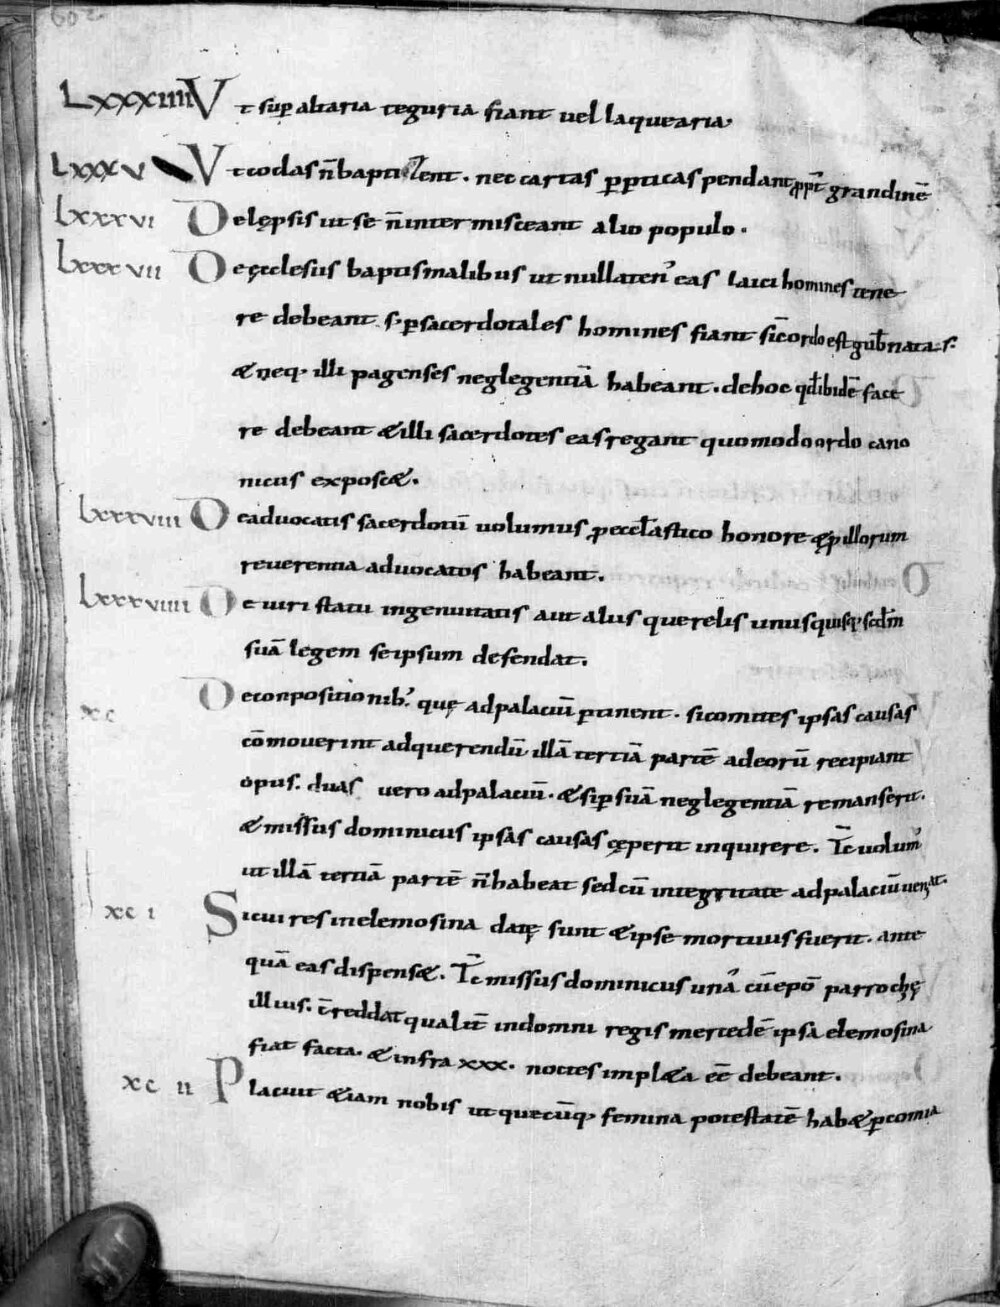 LXXXIIII Ut sup̄ altaria teguria fiant vel laquearia.
LXXXV Ut coclas n̄ baptizent. nec cartas p̱ p̱ticas pendant ꝓpt̄ grandinē
LXXXVI De lępsis ut se n̄ inter misceant alio populo.
LXXXVII De ęcclesiis baptismalibus ut nullaten' eas laici homines tene
re debeant. s; p̱ sacerdotales homines fiant sic̄ ordo est gub̄nata s.
& neq; illi pagenses neglegentiā habeant. de hoc qd̄ ibidē face
re debeant & illi sacerdotes eas regant quomodo ordo cano
nicus exposc&.
LXXXVIII De advocatis sacerdotū volumus ꝓ eccl̄astico honore & ꝓ illorum
reverentia advocatos habeant.
LXXXVIIII De iuri statu ingenuitatis aut aliis querelis unusquisq; scdm̄
suā legem se ipsum defendat.
XC De conpositionib; quę ad palaciū p̱tinent. si comites ipsas causas
cōmoverint ad querendū illā tertiā partē ad eorū recipiant
opus. duas vero ad palaciū. & si p̱ suā neglegentiā remanserit.
& missus dominicus ipsas causas cęperit inquirere. Tc̄ volum'
ut illā tertiā partē n̄ habeat sed cū integritate ad palaciū veniat.
XCI Si cui res in elemosina datę sunt & ipse mortuus fuerit. ante
quā eas dispens&. Tc̄ missus dominicus unā cū epō parrochę
illius. c̄reddat qualit̄ in domni regis mercedē ipsa elemosina
fiat facta. & infra xxx. noctes impl&a eē debeant.
XCII Placuit &iam nobis ut quecūq; femina potestatē hab& p̱ comia